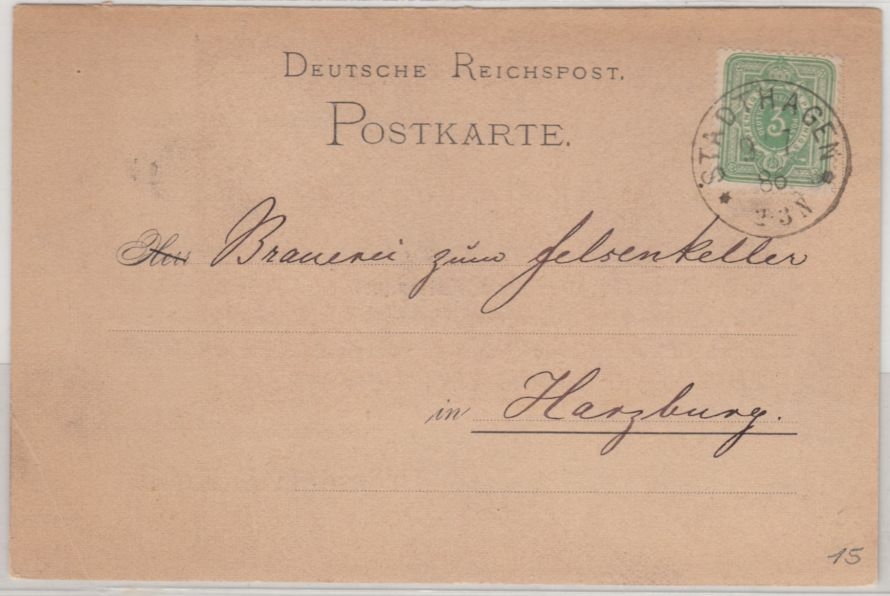 DEUTSCHE REICHSPOST.
POSTKARTE.
3
STADTHAGEN
86
2-3N
Herr Brauerei zum Felsenkeller
in Harzburg.
15